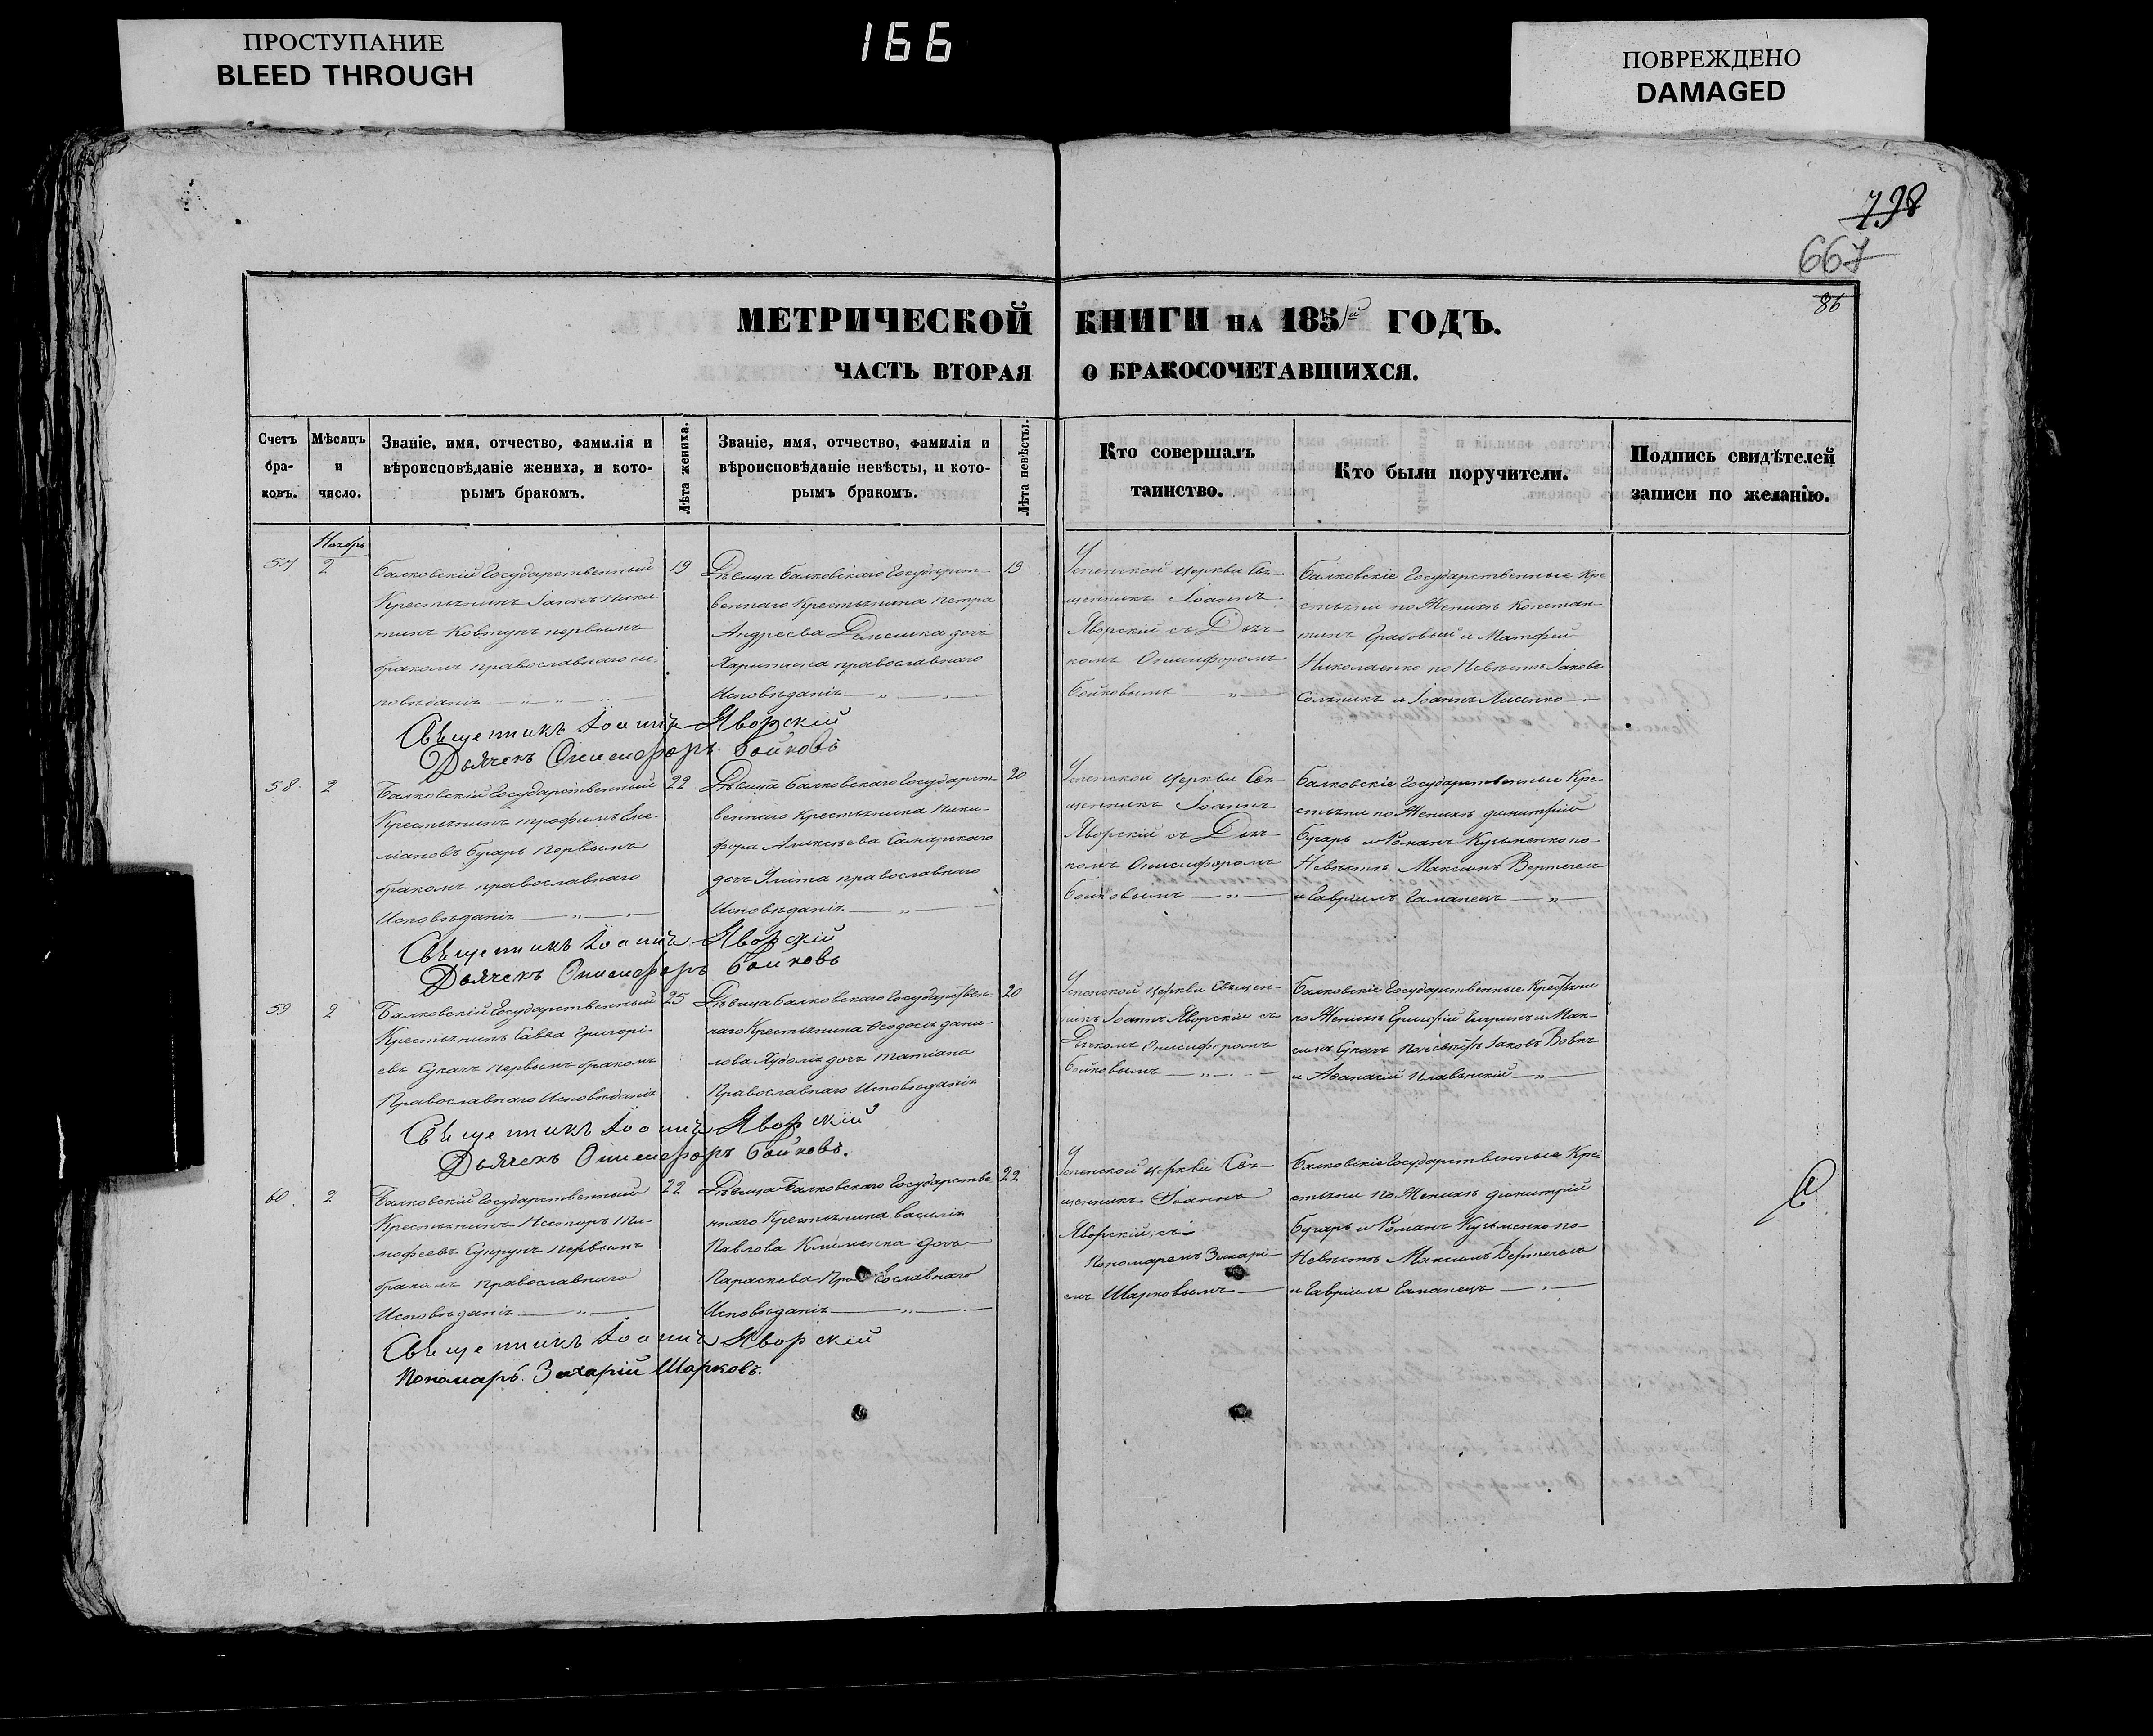 ПРОСТУПАНИЕ
BLEED THROUGH
166
ПОВРЕЖДЕНО
DAMAGED
798
667
86
МЕТРИЧЕСКОЙ КНИГИ НА 1851й ГОДЪ.
ЧАСТЬ ВТОРАЯ О БРАКОСОЧЕТАВШИХСЯ.
Счетъ бра-ковъ.
Мѣсяцъ и число.
Званіе, имя, отчество, фамилія и
вѣроисповѣданіе жениха, и кото-
рымъ бракомъ.
Лѣта жениха.
Званіе, имя, отчество, фамилія и
вѣроисповѣданіе невѣсты, и кото-
рымъ бракомъ.
Лѣта невѣсты.
Кто совершалъ
таинство.
Кто были поручители.
Подпись свидѣтелей
записи по желанію.
Ноябрь
57
2
Балковскій Государственный
Крестьянинъ Іоаннъ Ники
тинъ Ковтунъ первымъ
бракомъ православнаго ис-
повѣданія
19
Дѣвица Балковскаго Государст-
веннаго Крестьянина Петра
Андреева дочь
Харитина православнаго
Исповѣданія
19
Успенской церкви Свя-
щенникъ Іоаннъ
Яворскій съ Дьяч-
комъ Онисифоромъ
Бойковымъ
Балковскіе Государственные Кре
стьяни по Женихѣ Констан-
тинъ Грабовый и Матфей
Николаенко по Невѣстѣ Іаковъ
и Іоаннъ Лисенко
Священникъ Іоаннъ Яворскій
Дьячекъ Онисифоръ Бойковъ
58
2
Балковскій Государственный
Крестьянинъ Трофимъ Еме-
ліановъ Бугаръ первымъ
бракомъ православнаго
Исповѣданія
22
Дѣвица Балковскаго Государст-
веннаго Крестьянина Ники-
фора Алексѣева Самарскаго
дочь Улита православнаго
Исповѣданія
20
Успенской церкви Свя-
щенникъ Іоаннъ
Яворскій съ Дьяч-
комъ Онисифоромъ
Бойковымъ
Балковскіе Государственные Кре-
стьяни по Женихѣ Димитрій
Бугаръ и Романъ Кузьменко по
Невѣстѣ Максимъ Вертегелъ
и Гавріилъ Гаманецъ
Священникъ Іоаннъ Яворскій
Дьячекъ Онисифоръ Бойковъ
59
2
Балковскій Государственный
Крестьянинъ Савва Григорі-
евъ Сукачъ первымъ бракомъ
Православнаго Исповѣданія
25
Дѣвица Балковскаго Государствен-
наго Крестьянина Ѳеодосія Дани-
лова дочь Татіана
Православнаго Исповѣданія
20
Успенской церкви Священ-
никъ Іоаннъ Яворскій съ
Дьячкомъ Онисифоромъ
Бойковымъ
Балковскіе Государственные Крестьяни
по Женихѣ и Мак-
симъ Сукачъ по Невѣстѣ Іаковъ Вовкъ
и Аѳанасій
Священникъ Іоаннъ Яворскій
Дьячекъ Онисифоръ Бойковъ.
60
2
Балковскій Государственный
Крестьянинъ Несторъ Ти-
мофеевъ Супрунъ первымъ
бракомъ Православнаго
Исповѣданія
22
Дѣвица Балковскаго Государстве
ннаго Крестьянина Василія
Павлова Клименка дочь
Параскева Православнаго
Исповѣданія
22
Успенской церкви Свя-
щенникъ Іоаннъ
Яворскій съ
Пономаремъ Захарі-
емъ Шарковымъ
Балковскіе Государственные Кре-
стьяни по Женихѣ Димитрій
Бугаръ и Романъ Кузьменко по
Невѣстѣ Максимъ Вертегелъ
и Гавріилъ Гаманецъ
Священникъ Іоаннъ Яворскій
Пономарь Захарій Шарковъ.